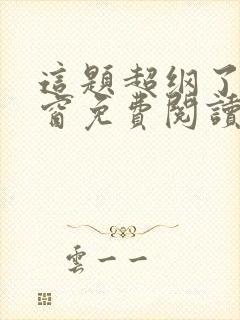 這題超纲了
窗免費閱讀
雲一一